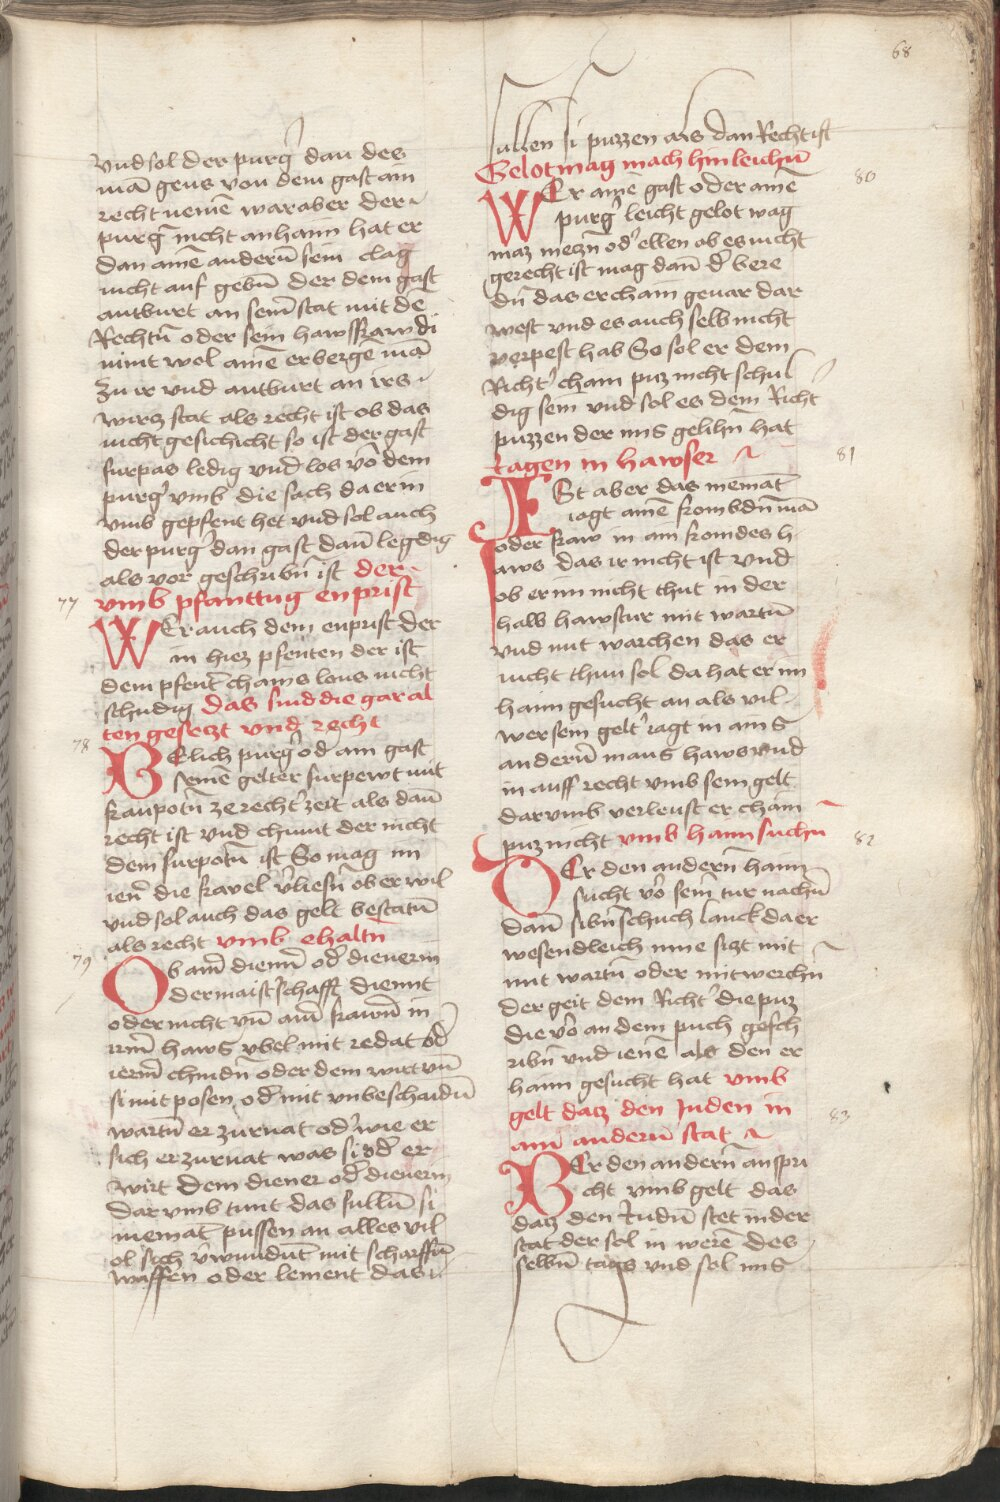 68
vnd sol der purg̾ dan des
mā geus von dem gast am
recht nemē war aber der
purg̾ nicht anhaim hat er
dan amē anderū sein clag
nicht auf gebn̄ der dem gast
antburt an seīn stat mit de
Rechtū oder sein hawsfraw di
nimt wol amē erberge mā
zu ir vnd antburt an irs
wircz stat als recht ist ob das
nicht geschicht so ist der gast
furpas ledig vnd los vō dem
purg̾ vmb die sach da er in
vmb gepfent het vnd sol auch
der purg̾ dan gast dan̄ legdig
als vor geschribn̄ ist der
77 vmb pfanttug enprist
WEr auch dem enprist der
in hiez pfenten der ist
dem pfent̾ chains lons nicht
schuldig das sind die gar al
ten geseczt vnd recht
78 WElich purg̾ od am gast
seinē gelter furpewt mit
franpotn̄ ze recht̾ zeit als dan̄
recht ist vnd chumt der nicht
dem furpotn̄ ist So mag im
ien̾ die fravel v̾liesn̄ ob er wil
vnd sol auch das gelt bestatn̄
als recht vmb ehaltn̄
79 Ob am̄ dienn̾ od̾ dienerin
der maist̾schafft diennt
oder nicht vn̄ am̄ frawn̄ in
irm̄ haws vbel mit redat od̾
ierm̄ chindn̄ oder dem wirt vn̄
si mit posen od̾ mit vnbeschaidn̄
wartn̄ er zurnat od̾ wie er
sich er zurnat was si od̾ er
wirt dem diener od̾ dienerin
dar vmb tunt das sulln̄ si
niemāt pussen an alles vil
ol sich v̾wundn̄t mit scharffn̄
waffen oder lement das
sullen si puzzen als dan Recht ist
80 Gelot mag mach hin leichn̄
WEr amē gast oder amē
purg̾ leicht gelot wag
maz meczn̄ od̾ ellen ob es nicht
gerecht ist mag dan̄ d̾ bere
dn̄ das er chain gevar dar
west vnd es auch selb nicht
verpest hab So sol er dem
Richt̾ chain puz nicht schul
dig sein vnd sol es dem Richt
puzzen der ims gelihn̄ hat
81 tagen in hawser
ISt aber das niemāt
iagt amē frombdn̄ mā
oder fraw in ain fromdes h
aws das ir nicht ist vnd
ob er im nicht thut in der
halb hawstur mit wartn̄
vnd mit warchen das er
nicht thun sol da hat er im
haim gesucht an als vil
wer sein gelt̾ iagt in ains
anderū mans haws vnd
in auff recht vmb sein gelt
dar vmb verleust er chain
puz nicht vmb haimsuchn̄
82 DEr den andern̄ haim
sucht vō sein̄ tur nachn̄
dan̄ sibn̄ schuch lanck da er
wesendleich inne sizt mit
mit wartn̄ oder mit werchn̄
der geit dem Richt̾ die puz
die vō an dem puch gesch
ribn̄ vnd ienē als den er
haim gesucht hat vmb
gelt dacz den Juden in
83 am̄ anderū stat
WEr den andern̄ anspri
cht vmb gelt das
dacz den Judn̄ stet in der
stat der sol in weren des
selbn̄ tags vnd sol ims